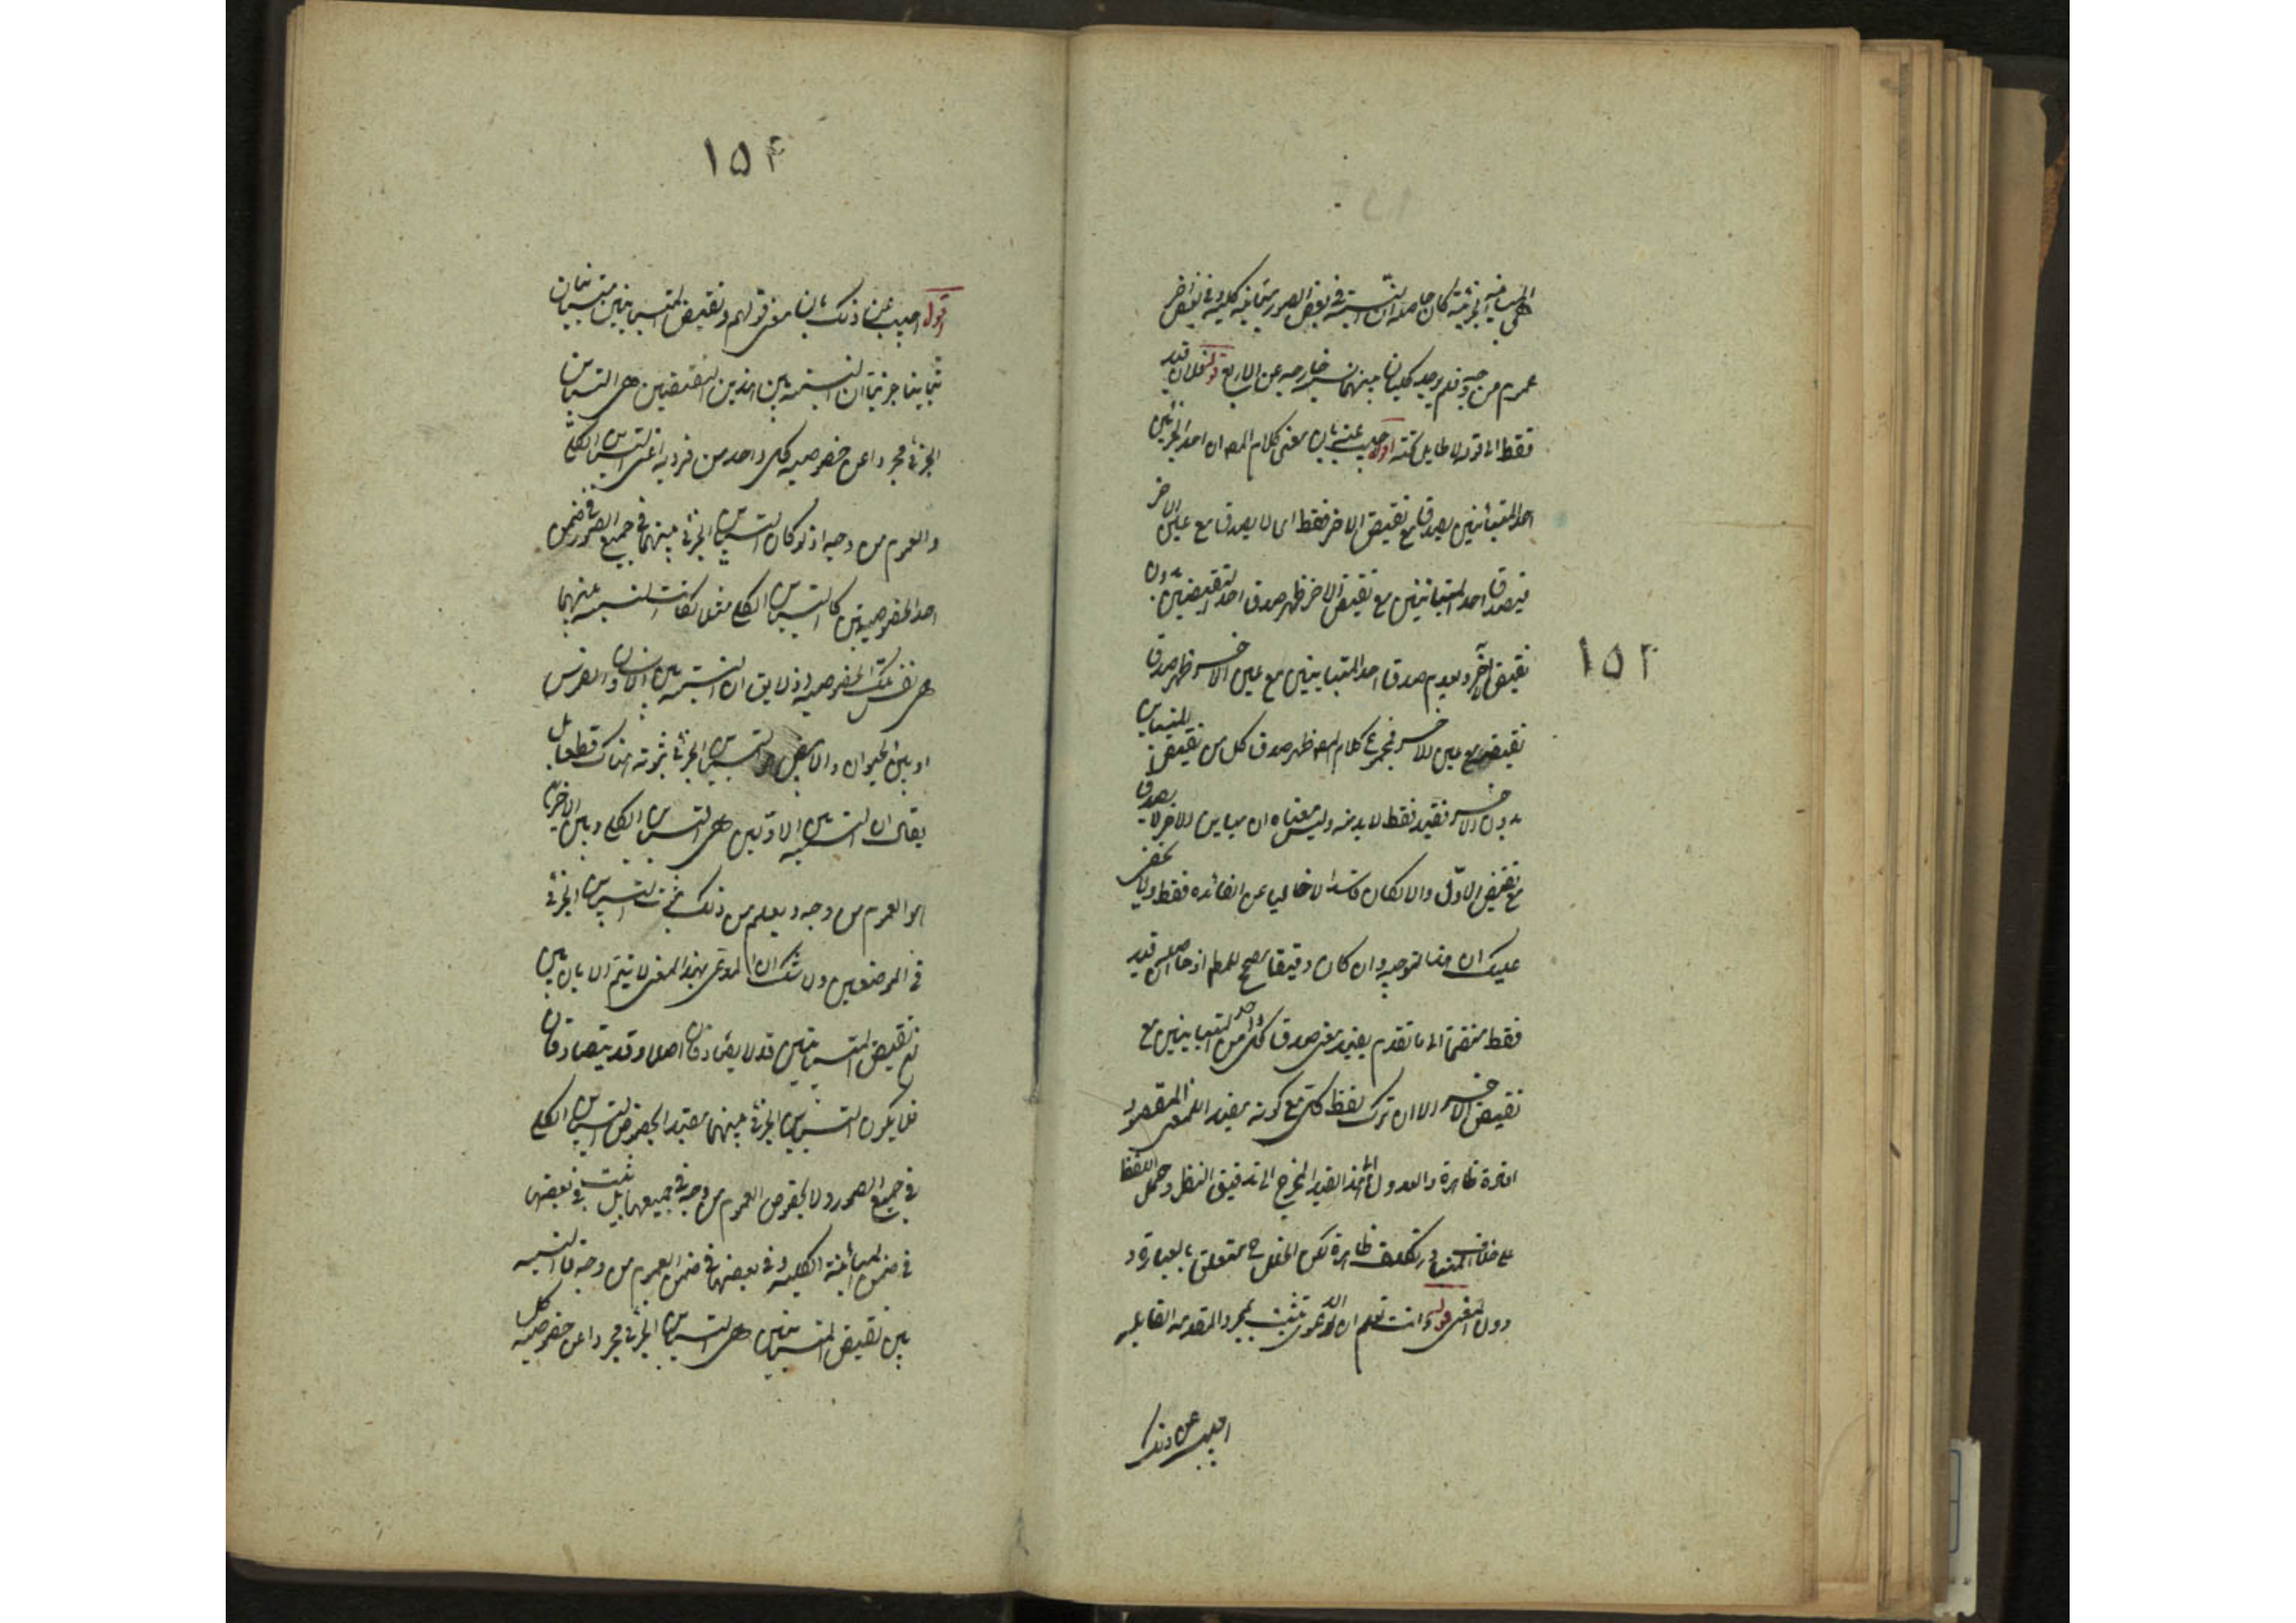 هي المباينة الجزئية كان حاصله ان النسبة في بعض الصور مباينة كلية وفي بعض اخر
عموم من وجه فلم يوجد كليان بينهما نسبة خارجة عن الاربع قوله نقول ان قيد
فقط الى قوله لا طايل تحته اقول اجيب عنه بان معنى كلام المصه ان احد الجزئين
احد المتباينين يصدق مع نقيض الاخر فقط اى لا يصدق مع عين الاخر
فبصدق احد المتباينين مع نقيض الاخر ظهر صدق احد النقيضين بدون
نقيض الاخر وبعدم صدق احد المتباينين مع عين الاخر ظهر صدق
نقيضه مع عين الاخر فمجموع كلام المصه ظهر صدق كل من نقيض المتباينين
بدون الاخر فقيد فقط لا بد منه وليس معناه ان مباين الاخر لا يصدق
مع نقيض الاول والا لكان فاسدا لا خاليا عن الفائدة فقط ولا يخفى
عليك ان هذا التوجيه وان كان دقيقا يصح للمط اذ حاصله ان قيد
فقط منضما الى ما تقدم يفيد معنى صدق كل واحد من المتباينين مع
نقيض الاخر الا ان ترك لفظ كل مع كونه مفيد المعنى المقصود
افادة ظاهرة والعدول الى هذا القيد المخرج الى تدقيق النظر وحمل اللفظ
على خلاف المتبادر تكلف ظاهرة لكن الخلل ح متعلق بالعبارة
دون المعنى قوله وانت تعلم ان الدعوى تثبت بمجرد المقدمة القايلة
اجيب عن ذلك
١٥٣
١٥٤
اقول اجيب عن ذلك بان معنى قولهم ونقيض المتباينين متباينان
تباينا جزئيا ان النسبة بين هذين النقيضين هى التباين
الجزئى مجردا عن خصوصية كل واحد من فرديه اعنى التباين الكلى
والعموم من وجه اذ لو كان التباين الجزئى بينهما في جميع الصور في ضمن
احد الخصوصيتين كالتباين الكلى مثلا لكانت النسبة بينهما
هى نفس تلك الخصوصية اذ لا يق ان النسبة بين الانسان والفرس
او بين الحيوان والابيض هو التباين الجزئى مع ثبوته هناك قطعا بل
يقال ان النسبة بين الاولين هى التباين الكلى وبين الاخرين
هو العموم من وجه ويعلم من ذلك تحقق التباين الجزئى
في الموضعين ولا شك ان المدعى بهذا المعنى لا يتم الا بان يبين
ان نقيض المتباينين قد لا يتصادقان اصلا وقد يتصادقان
فلا يكون التباين الجزئى بينهما مقيدا بخصوص التباين الكلى
في جميع الصور ولا بخصوص العموم من وجه في جميعها بل ثبت في بعضها
في ضمن المباينة الكلية وفي بعضها في ضمن العموم من وجه فالنسبة
بين نقيض المتباينين هى التباين الجزئى مجردا عن خصوصية كل